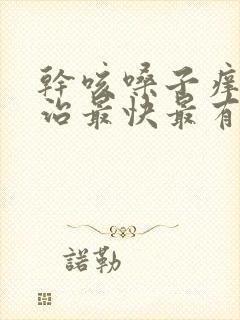 幹咳嗓子癢
治最快最有
諾勒